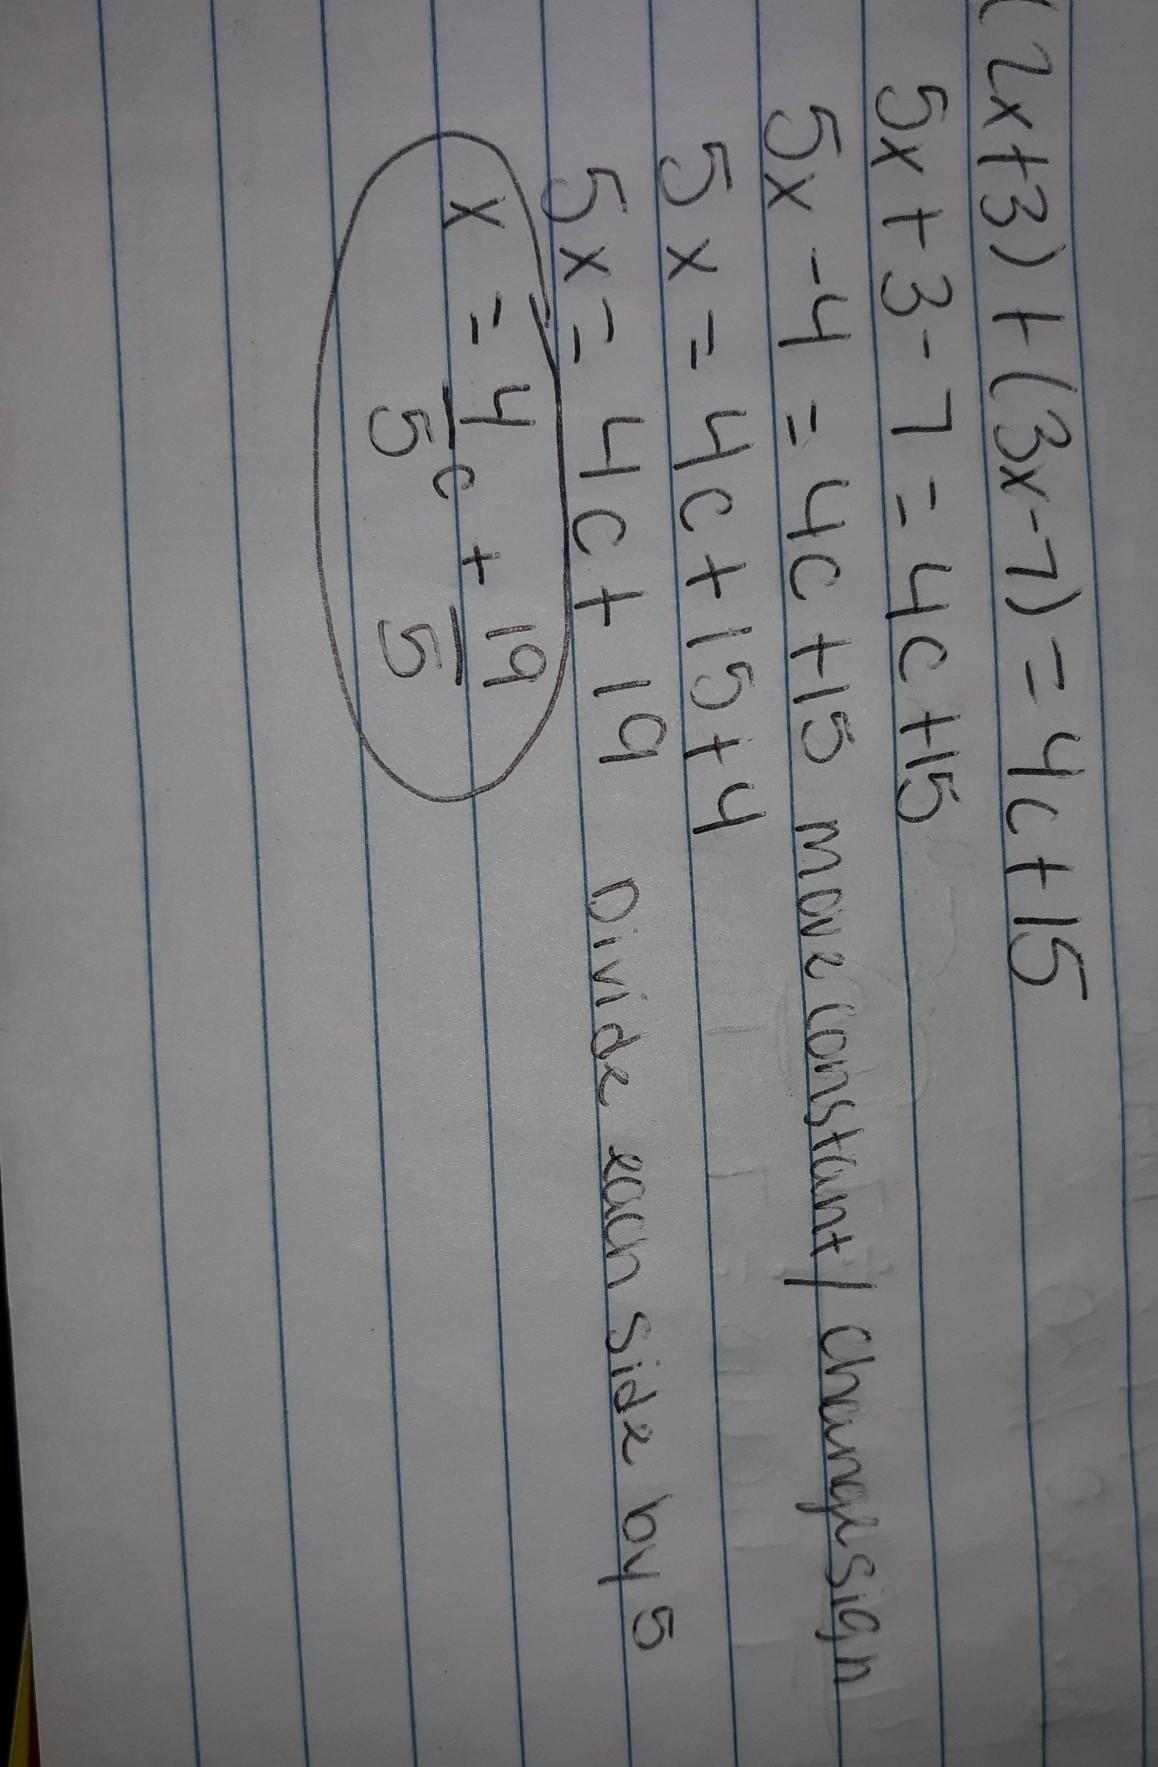 (2x+3)+(3x-7)=4c+15
5x+3-7=4c+15
5x-4=4c+15 move constant/change sign
5x=4c+15+4
5x=4c+19 Divide each side by 5
x=4/5c+19/5